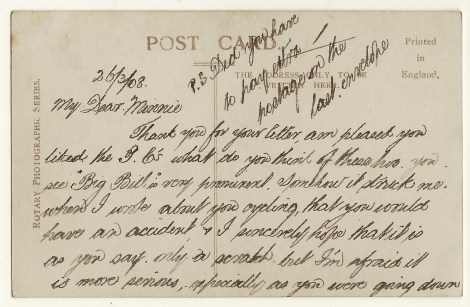 POST CARD.
Printed
in
England.
THE ADDRESS ONLY TO BE
WRITTEN HERE.
ROTARY PHOTOGRAPHIC SERIES.
P.S Did you have
to pay extra
postage on the
last envelope !
26/3/08.
My Dear Minnie
Thank you for your letter am pleased you
liked the P. C's what do you think of these two. you
see "Big Bill" is very prominent Somehow it struck me
when I wrote about you cycling, that you would
have an accident & I sincerely hope that it is
as you say, only a scratch but I'm afraid it
is more serious, especially as you were going down